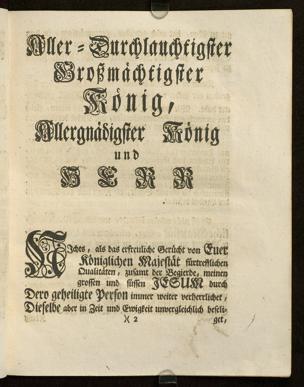 Aller-Durchlauchtigster
Großmächtigster
König,
Allergnädigster König
und
HERR
NIchts, als das erfreuliche Gerücht von Euer
Königlichen Majestät fürtrefflichen
Qualitäten, zusamt der Begierde, meinen
grossen und süssen JESUM durch
Dero geheiligte Person immer weiter verherrlichet,
Dieselbe aber in Zeit und Ewigkeit unvergleichlich beseli-
)( 2 get,